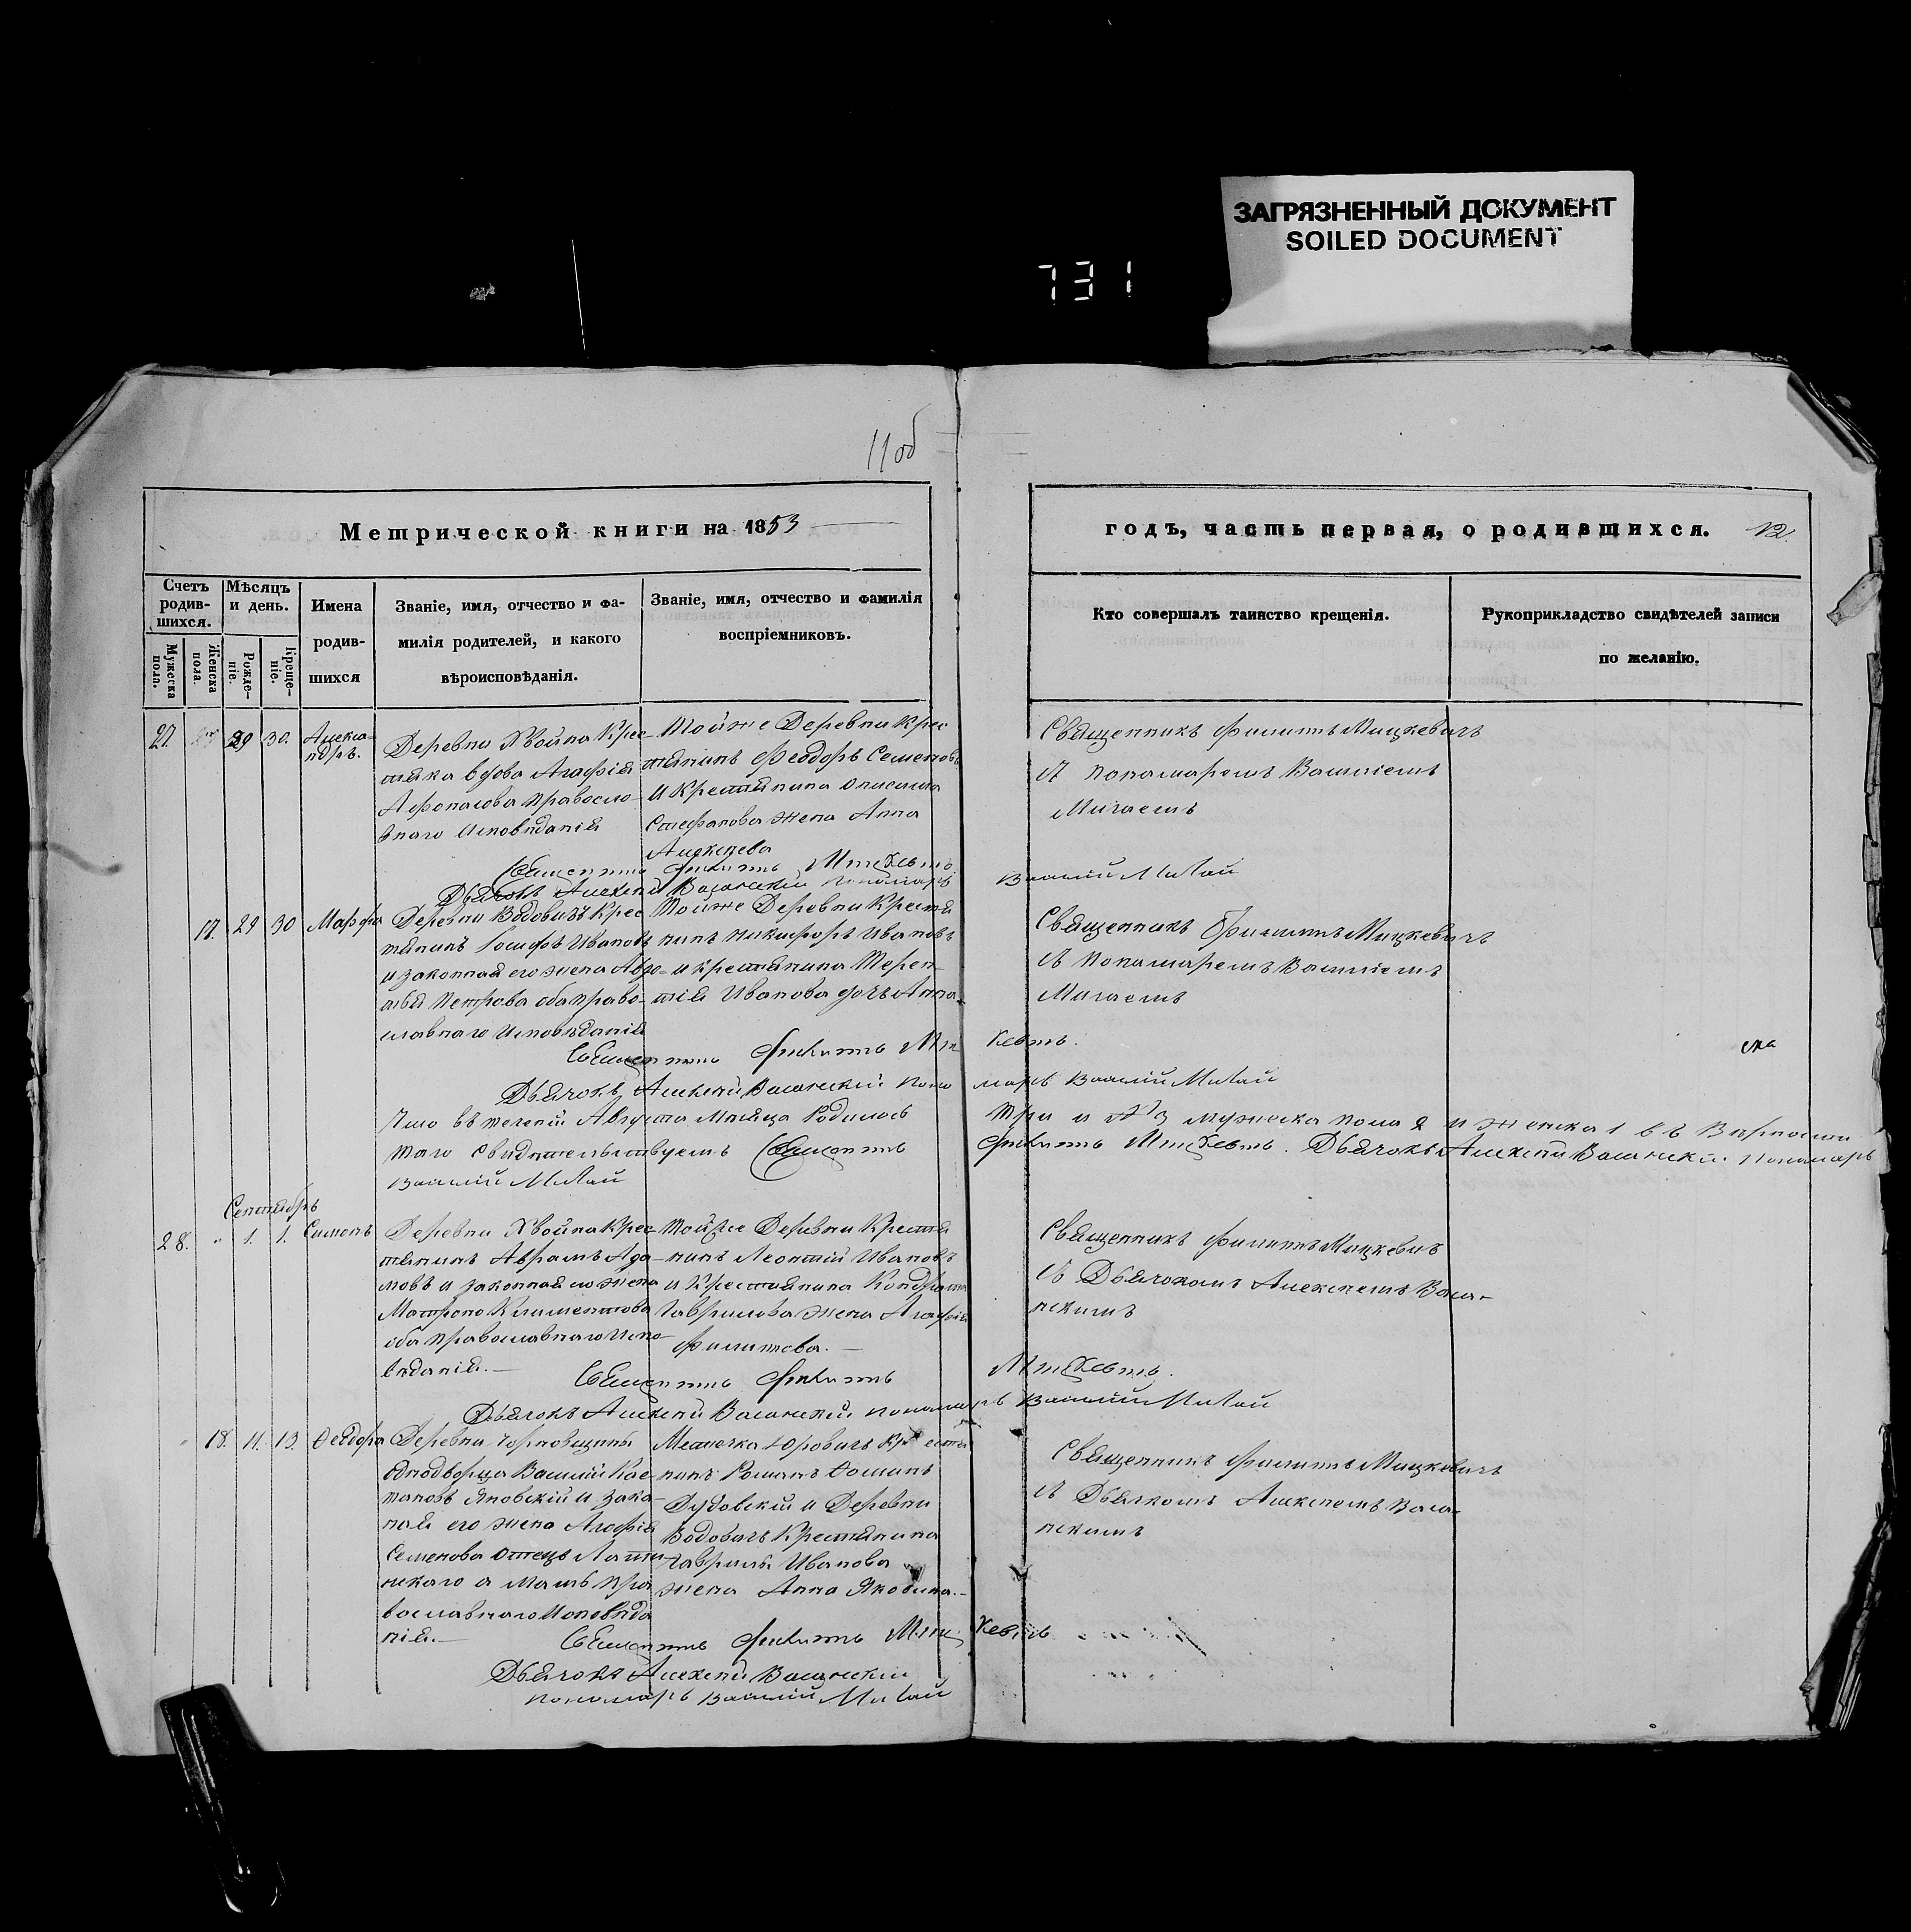 ЗАГРЯЗНЕННЫЙ ДОКУМЕНТ
SOILED DOCUMENT
731
11об
Метрической книги на 1853
Счетъ родив-шихся.
Мужеска пола.
Женска пола.
Мѣсяцъ и день.
Рожде-ніе.
Креще-ніе.
Имена
родив-
шихся
Званіе, имя, отчество и фа-
милія родителей, и какого
вѣроисповѣданія.
Званіе, имя, отчество и фамилія
воспріемниковъ.
годъ, часть первая, о родившихся. 12.
Кто совершалъ таинство крещенія.
Рукоприкладство свидѣтелей записи
по желанію.
27. 29 30. Алекса-
ндръ.
Деревни Хвойна Крес-
тянка вдова Агафія
Афонасова православ-
внаго Исповѣданія
Тойже Деревни Крес-
тянинъ Феодоръ Семеновъ
и Крестянина
Стефанова жена Анна
Алексѣева
Священникъ Филиппъ Мицкевичъ
съ пономаремъ Василіемъ
Мигаемъ
Священникъ Филиппъ Мицкевичъ
Дьячокъ Алексѣй пономарь Василій Мигай
17. 29 30 Марфа
Деревни Крес
тянинъ Іосифъ Ивановъ
и законная его жена
Петрова оба право-
славнаго Исповѣданія
Тойже Деревни Крестя
нинъ Никифоръ Ивановъ
и крестянина Терен-
тія Иванова дочь Анна.
Священникъ Филиппъ Мицкевичъ
съ Пономаремъ Василіемъ
Мигаемъ
Священникъ Филиппъ Мицкевичъ.
Дьячокъ Алексѣй пономарь Василій Мигай
Что въ теченіи Августа Мѣсяца Родилось три мужеска пола 2 и женска 1 въ вѣрности
того свидѣтельствуемъ Священникъ Филиппъ Мицкевичъ. Дьячокъ Алексѣй Пономарь
Василій Мигай
Сентябрь
28. " 1. 1. Симонъ
Деревни Хвойна Крес-
тянинъ Аврамъ Ада-
мовъ и законная его жена
Матрона Климентова
оба православнаго Испо-
вѣданія.
Тойже Деревни Крестя
нинъ Леонтій Ивановъ
и Крестянина Кондрата
Гаврилова жена Агафія
Филипова.
Священникъ Филиппъ Мицкевичъ
съ Дьячкомъ Алексѣемъ
Священникъ Филиппъ Мицкевичъ.
Дьячокъ Алексѣй пономарь Василій Мигай
18. 11. 13. Ѳеодора
Деревни
однодворца Василій
Яновскій и зако-
ная его жена Агафія
Семенова отецъ Латин-
скаго а мать пра
вославнаго Исповѣда
нія.
Местечка Юровичъ Крестя
нинъ Романъ
Дудовскій и Деревни
Крестянина
Гавріила Иванова
жена Анна
Священникъ Филиппъ Мицкевичъ
съ Дьячкомъ Алексѣемъ
Священникъ Филиппъ Мицкевичъ
Дьячокъ Алексѣй
пономарь Василій Мигай